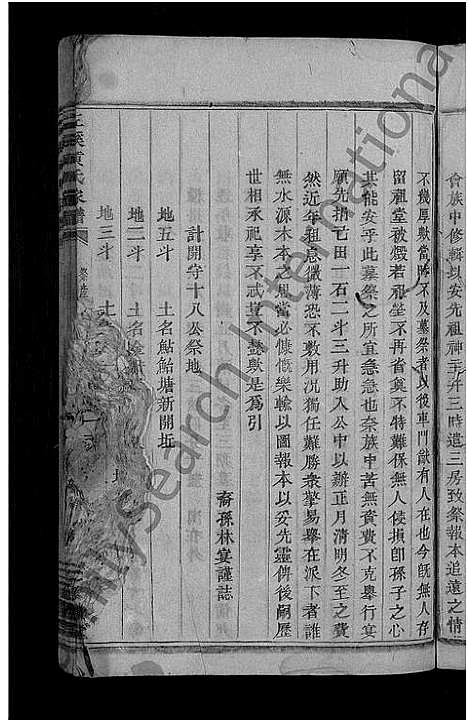 會族中修輯以安先祖神主并三時遣三房致祭報本追遠之情
不幾厚歟當時不及墓祭者以後車門猷有人在也今旣無人存
留祖堂被燬若祖塋不再省奠不特難保無人侵損卽孫子之心
其能安乎此墓祭之所宜急急也奈族中苦無資費不克舉行宴
願先捐亡田一石二斗三升助入公中以辦正月清明冬至之費
然近年租息微薄恐不敷用况獨任難勝衆擎易舉在派下者誰
無水源木本之思當必慷慨樂輸以圖報本以妥先靈俾後嗣歷
世相承祀享不忒豈不懿歟是為引
裔孫林宴謹誌
計開守十八公祭地
地五斗 土名鮎鮐塘新開坵
地二斗 土名
地三斗 土
黃氏家譜
mysearch International